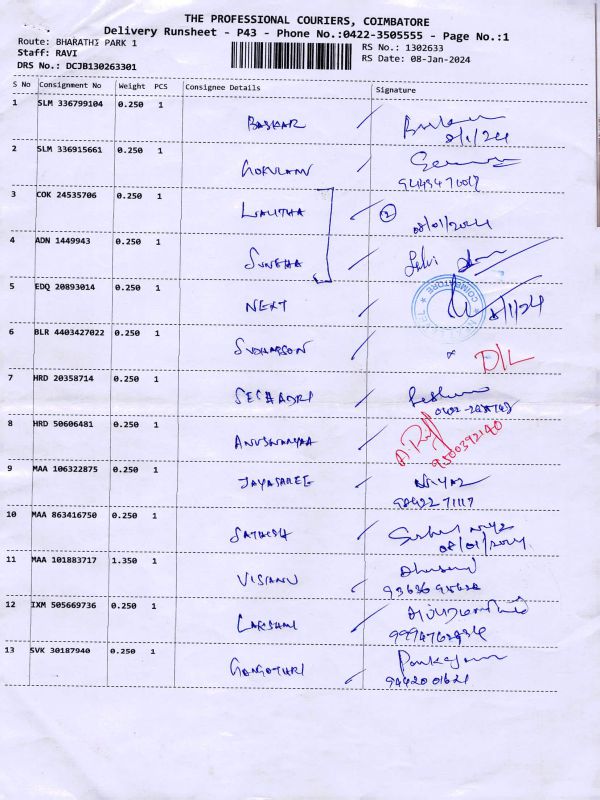 THE PROFESSIONAL COURIERS, COIMBATORE
Delivery Runsheet - P43 - Phone No.:0422-3505555 - Page No.:1
Route: BHARATHI PARK 1
Staff: RAVI
DRS No.: DCJB130263301
RS No.: 1302633
RS Date: 08-Jan-2024
S No Consignment No Weight PCS Consignee Details Signature
1 SLM 336799104 0.250 1 BASKAR
8/1/24
2 SLM 336915661 0.250 1 GOKULAM
3 COK 24535706 0.250 1 LALITHA ②
08/01/2024
4 ADN 1449943 0.250 1 SUNEHA Selvi
5 EDQ 20893014 0.250 1 NEXT 8/1/24
COIMBATORE
6 BLR 4403427022 0.250 1 SUDHARSON D/L
7 HRD 20358714 0.250 1 SESHADRI
8 HRD 50606481 0.250 1 ANUSWANYAA
9500392140
9 MAA 106322875 0.250 1 JAYASREE
98422 71117
10 MAA 863416750 0.250 1 SATHISH
08/01/2024
11 MAA 101883717 1.350 1 VISHNU
12 IXM 505669736 0.250 1 LAKSHMI
13 SVK 30187940 0.250 1 GANGOTHRI
9442001621